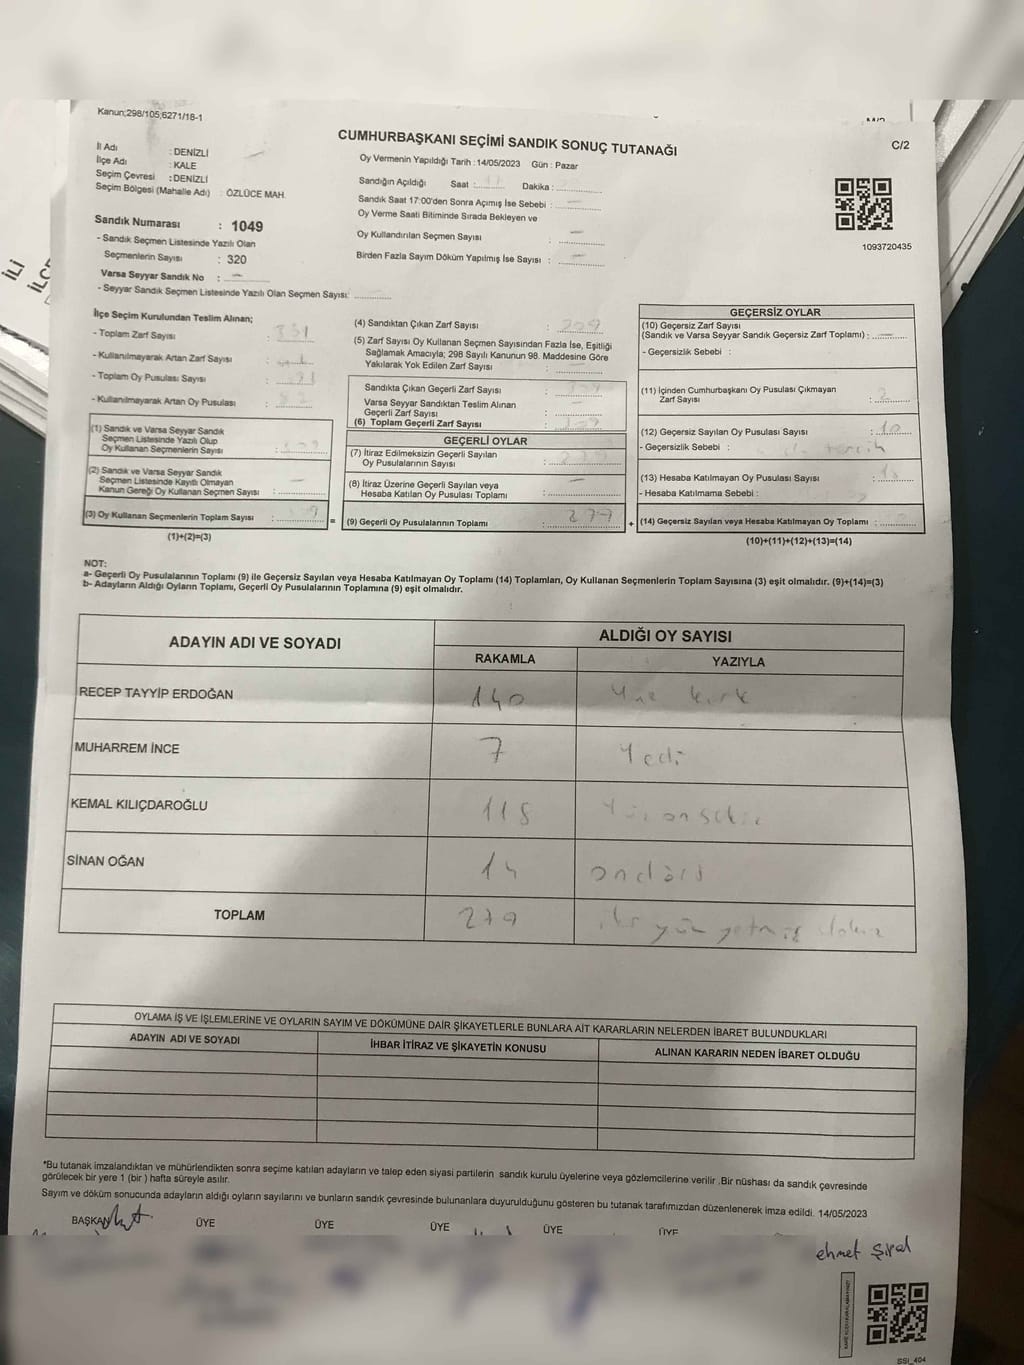 Kanun;298/105;6271/18-1
C/2
CUMHURBAŞKANI SEÇİMİ SANDIK SONUÇ TUTANAĞI
İl Adı : DENİZLİ
İlçe Adı : KALE
Seçim Çevresi : DENİZLİ
Seçim Bölgesi (Mahalle Adı) : ÖZLÜCE MAH.
Oy Vermenin Yapıldığı Tarih : 14/05/2023 Gün : Pazar
Sandığın Açıldığı Saat : Dakika :
Sandık Saat 17:00'den Sonra Açımış İse Sebebi : –
Oy Verme Saati Bitiminde Sırada Bekleyen ve
Oy Kullandırılan Seçmen Sayısı : –
Birden Fazla Sayım Döküm Yapılmış İse Sayısı : –
1093720435
Sandık Numarası : 1049
- Sandık Seçmen Listesinde Yazılı Olan
Seçmenlerin Sayısı : 320
Varsa Seyyar Sandık No : –
- Seyyar Sandık Seçmen Listesinde Yazılı Olan Seçmen Sayısı:
İlçe Seçim Kurulundan Teslim Alınan;
- Toplam Zarf Sayısı : 331
- Kullanılmayarak Artan Zarf Sayısı :
- Toplam Oy Pusulası Sayısı :
- Kullanılmayarak Artan Oy Pusulası :
(1) Sandık ve Varsa Seyyar Sandık
Seçmen Listesinde Yazılı Olup
Oy Kullanan Seçmenlerin Sayısı :
(2) Sandık ve Varsa Seyyar Sandık
Seçmen Listesinde Kayıtlı Olmayan
Kanun Gereği Oy Kullanan Seçmen Sayısı : –
(3) Oy Kullanan Seçmenlerin Toplam Sayısı :
(1)+(2)=(3)
(4) Sandıktan Çıkan Zarf Sayısı :
(5) Zarf Sayısı Oy Kullanan Seçmen Sayısından Fazla İse, Eşitliği
Sağlamak Amacıyla; 298 Sayılı Kanunun 98. Maddesine Göre
Yakılarak Yok Edilen Zarf Sayısı : –
Sandıkta Çıkan Geçerli Zarf Sayısı :
Varsa Seyyar Sandıktan Teslim Alınan
Geçerli Zarf Sayısı : –
(6) Toplam Geçerli Zarf Sayısı :
GEÇERLİ OYLAR
(7) İtiraz Edilmeksizin Geçerli Sayılan
Oy Pusulalarının Sayısı : 279
(8) İtiraz Üzerine Geçerli Sayılan veya
Hesaba Katılan Oy Pusulası Toplamı : –
= (9) Geçerli Oy Pusulalarının Toplamı : 279
GEÇERSİZ OYLAR
(10) Geçersiz Zarf Sayısı
(Sandık ve Varsa Seyyar Sandık Geçersiz Zarf Toplamı) : –
- Geçersizlik Sebebi :
(11) İçinden Cumhurbaşkanı Oy Pusulası Çıkmayan
Zarf Sayısı : 2
(12) Geçersiz Sayılan Oy Pusulası Sayısı : 10
- Geçersizlik Sebebi :
(13) Hesaba Katılmayan Oy Pusulası Sayısı :
- Hesaba Katılmama Sebebi :
+ (14) Geçersiz Sayılan veya Hesaba Katılmayan Oy Toplamı :
(10)+(11)+(12)+(13)=(14)
NOT:
a- Geçerli Oy Pusulalarının Toplamı (9) ile Geçersiz Sayılan veya Hesaba Katılmayan Oy Toplamı (14) Toplamları, Oy Kullanan Seçmenlerin Toplam Sayısına (3) eşit olmalıdır. (9)+(14)=(3)
b- Adayların Aldığı Oyların Toplamı, Geçerli Oy Pusulalarının Toplamına (9) eşit olmalıdır.
ADAYIN ADI VE SOYADI
ALDIĞI OY SAYISI
RAKAMLA YAZIYLA
RECEP TAYYİP ERDOĞAN 140 Yüz kırk
MUHARREM İNCE 7 Yedi
KEMAL KILIÇDAROĞLU 118 Yüz onsekiz
SİNAN OĞAN 14 ondört
TOPLAM 279 iki yüz yetmiş dokuz
OYLAMA İŞ VE İŞLEMLERİNE VE OYLARIN SAYIM VE DÖKÜMÜNE DAİR ŞİKAYETLERLE BUNLARA AİT KARARLARIN NELERDEN İBARET BULUNDUKLARI
ADAYIN ADI VE SOYADI İHBAR İTİRAZ VE ŞİKAYETİN KONUSU ALINAN KARARIN NEDEN İBARET OLDUĞU
*Bu tutanak imzalandıktan ve mühürlendikten sonra seçime katılan adayların ve talep eden siyasi partilerin sandık kurulu üyelerine veya gözlemcilerine verilir .Bir nüshası da sandık çevresinde
görülecek bir yere 1 (bir ) hafta süreyle asılır.
Sayım ve döküm sonucunda adayların aldığı oyların sayılarını ve bunların sandık çevresinde bulunanlara duyurulduğunu gösteren bu tutanak tarafımızdan düzenlenerek imza edildi. 14/05/2023
BAŞKAN ÜYE ÜYE ÜYE ÜYE ÜYE
SSİ_404